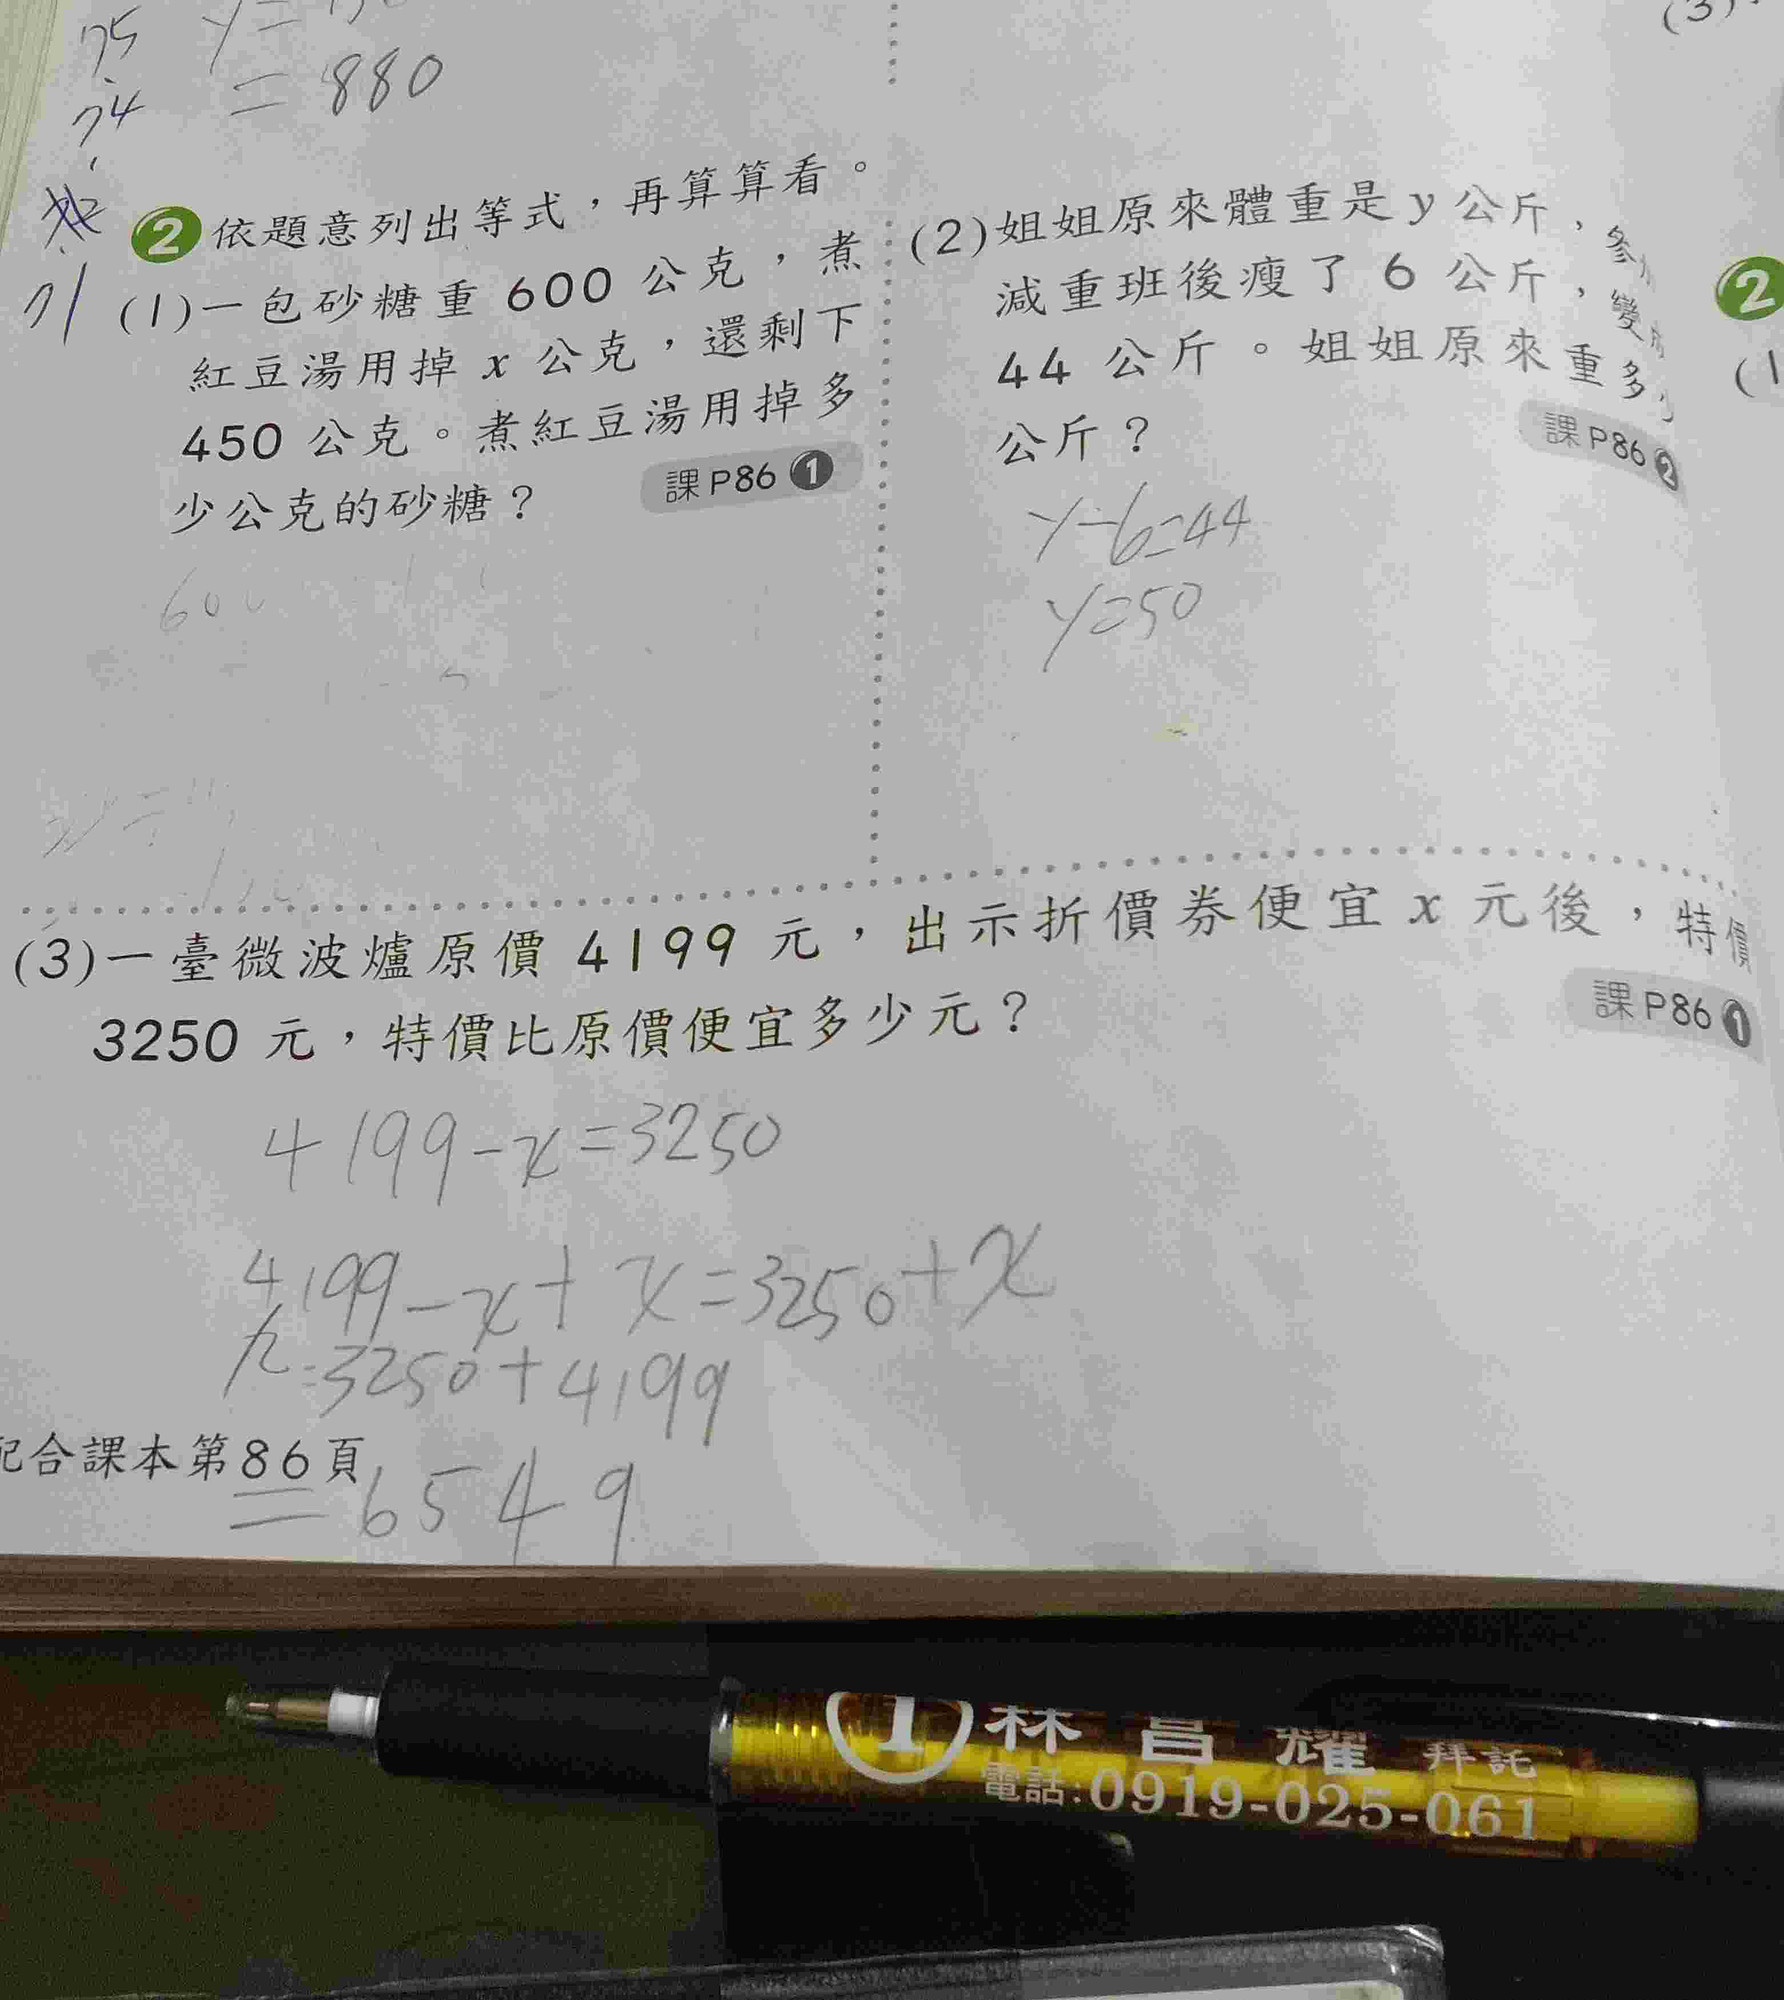 75 y=
74 = 880
71
2 依題意列出等式，再算算看。
(1)一包砂糖重 600 公克，煮
紅豆湯用掉 x 公克，還剩下
450 公克。煮紅豆湯用掉多
少公克的砂糖？ 課P86 1
600
(2)姐姐原來體重是 y 公斤，參
減重班後瘦了 6 公斤，變
44 公斤。姐姐原來重多
公斤？ 課P86 2
y-6=44
y=50
(3)
2
(1
(3)一臺微波爐原價 4199 元，出示折價券便宜 x 元後，特價
3250 元，特價比原價便宜多少元？ 課P86 1
4199-x=3250
4199-x+x=3250+x
3250+4199
配合課本第86頁
=6549
1 林昌耀 拜託
電話:0919-025-061